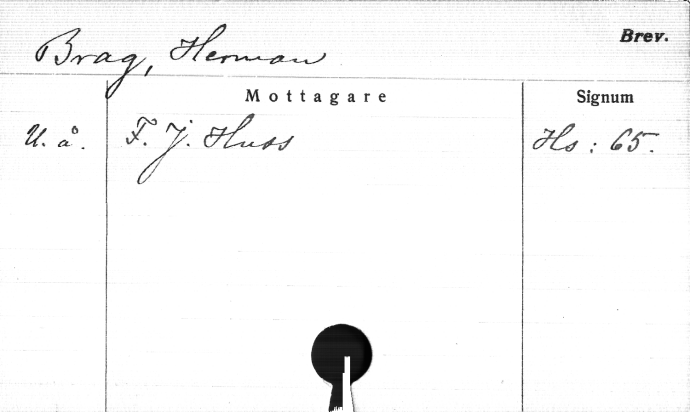 Brag, Herman
Brev.
Mottagare
Signum
U. å. F. J. Huss Hs : 65.